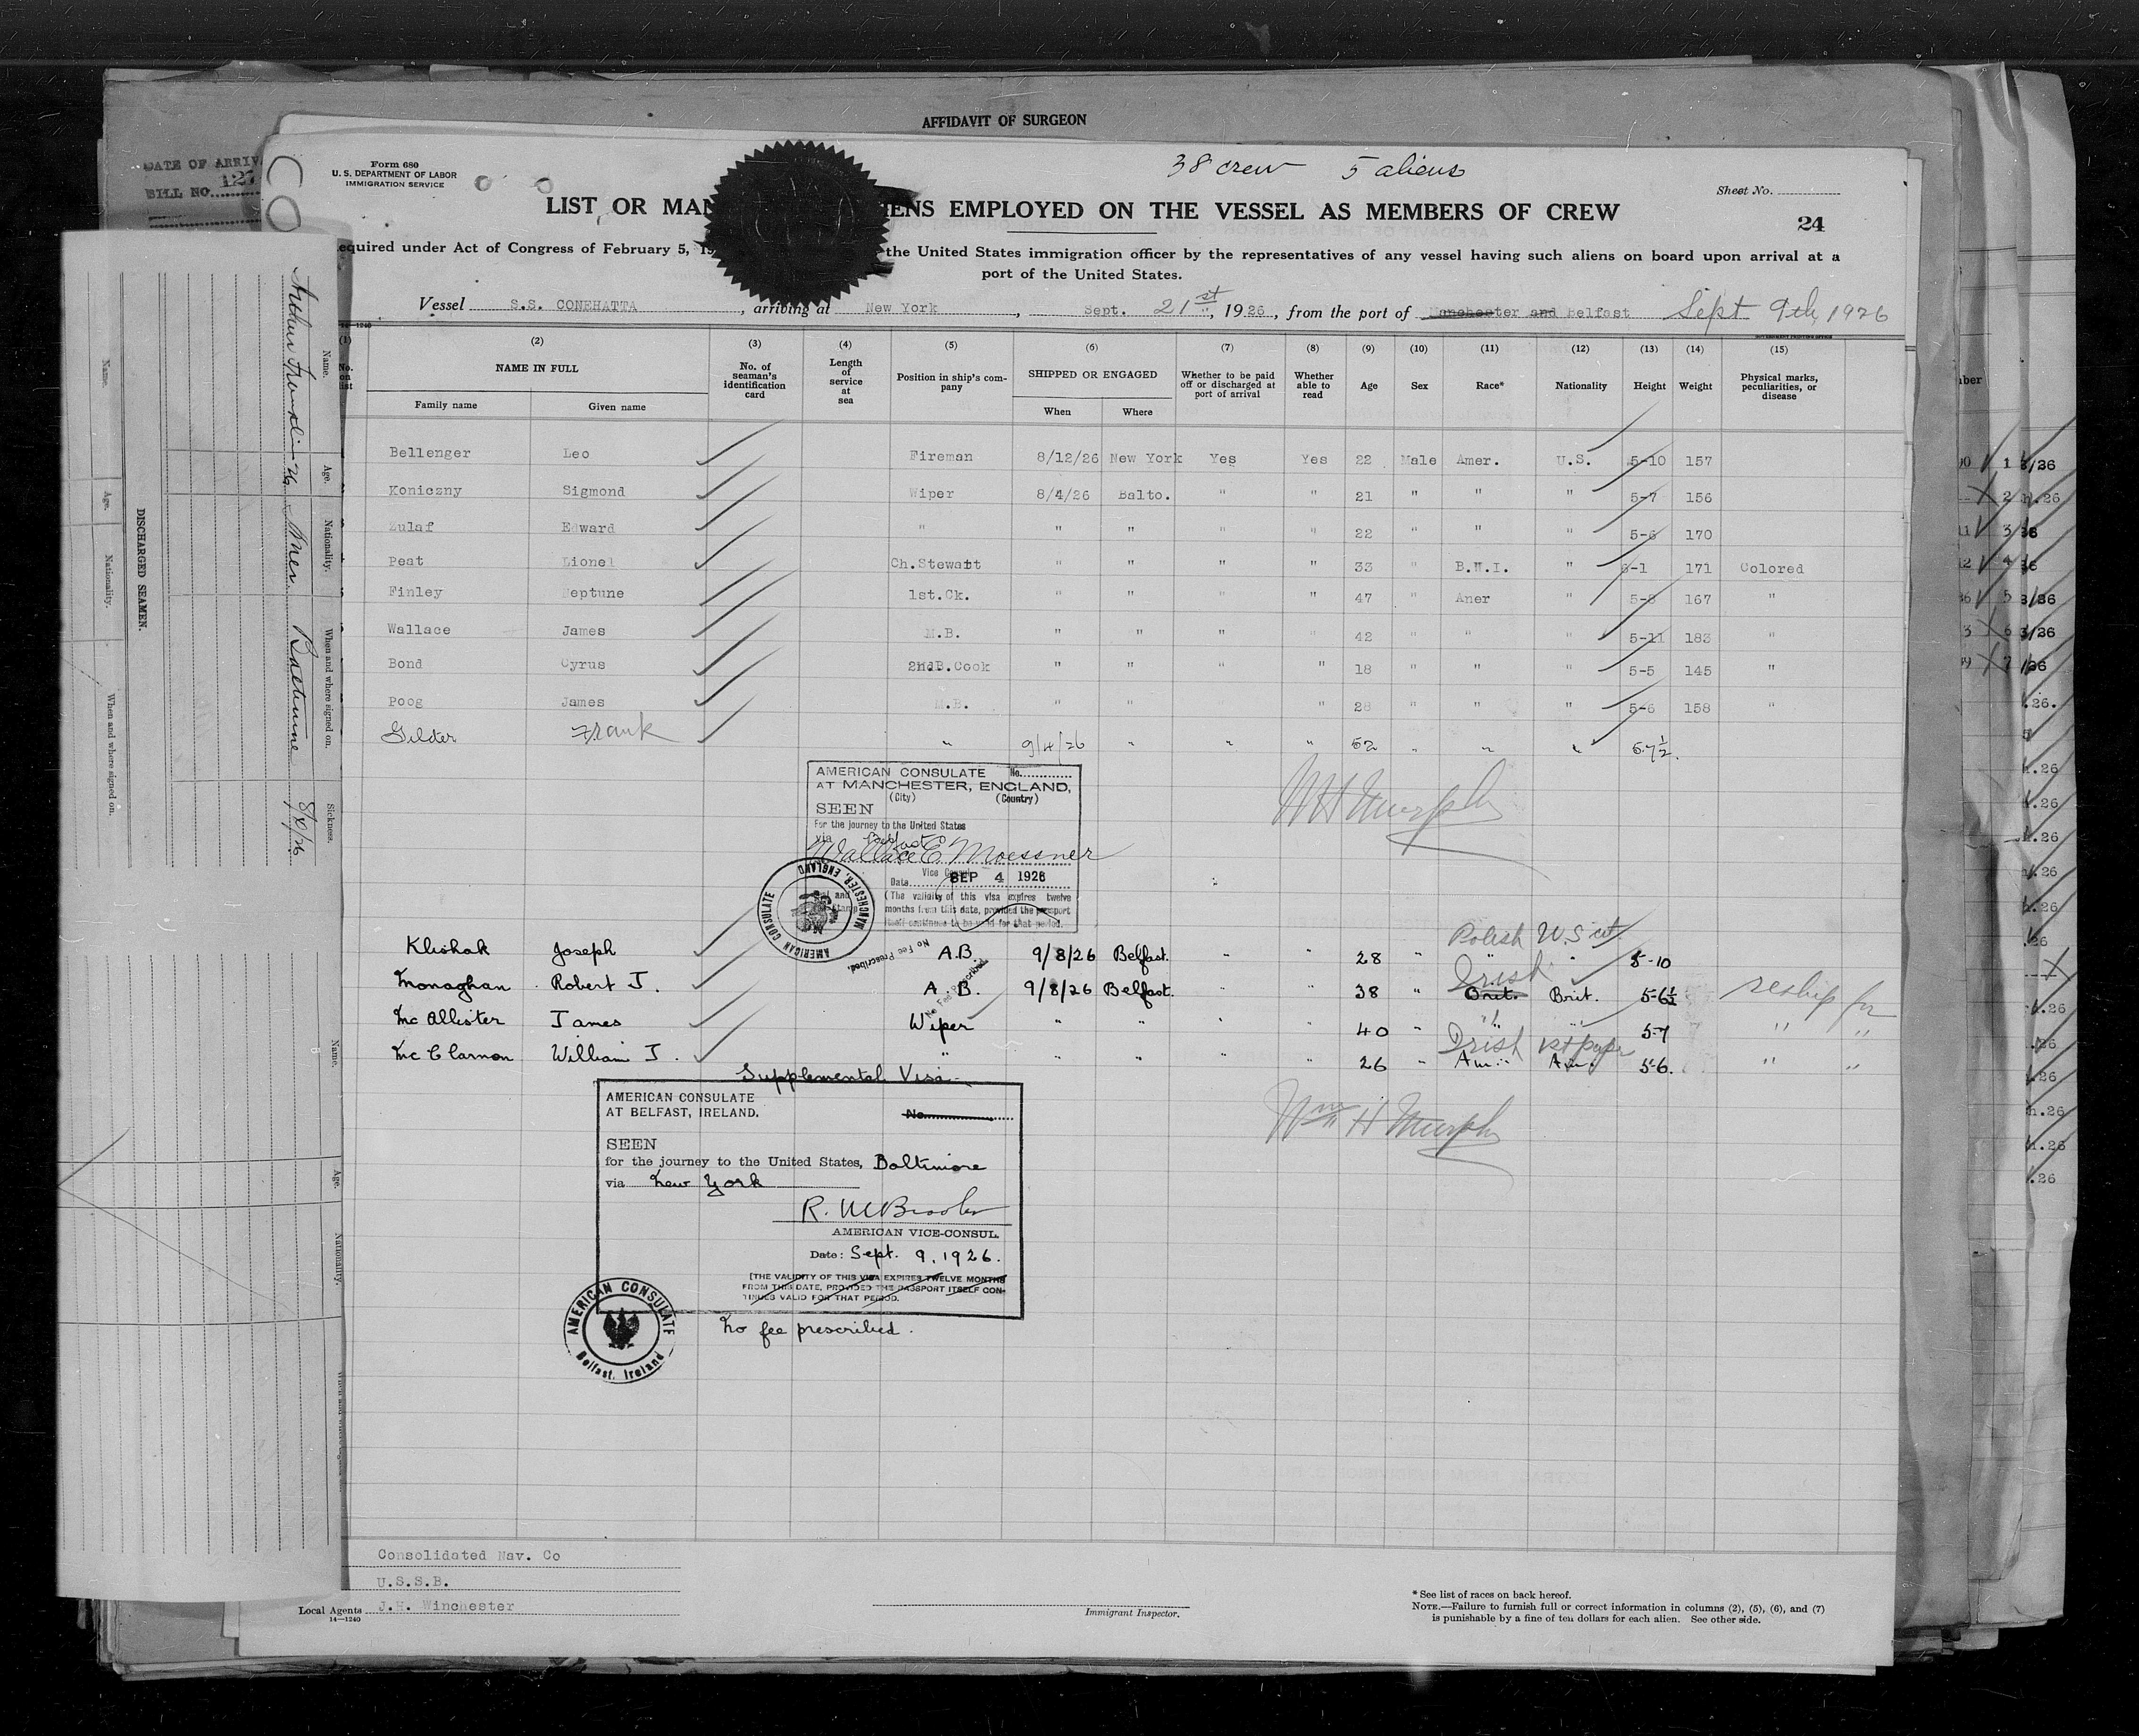 AFFIDAVIT OF SURGEON
DATE OF ARRIV
BILL NO. 127
Form 680
U. S. DEPARTMENT OF LABOR
IMMIGRATION SERVICE
38 crew 5 aliens
Sheet No.
LIST OR MAN IENS EMPLOYED ON THE VESSEL AS MEMBERS OF CREW
24
equired under Act of Congress of February 5, 19 the United States immigration officer by the representatives of any vessel having such aliens on board upon arrival at a
port of the United States.
Vessel S.S. CONEHATTA, arriving at New York, Sept. 21st, 1926, from the port of Manchester and Belfast Sept 9th, 1926
14-1240
(1) (2) (3) (4) (5) (6) (7) (8) (9) (10) (11) (12) (13) (14) (15)
No. on list NAME IN FULL No. of seaman's identification card Length of service at sea Position in ship's company SHIPPED OR ENGAGED Whether to be paid off or discharged at port of arrival Whether able to read Age Sex Race* Nationality Height Weight Physical marks, peculiarities, or disease
Family name Given name When Where
Bellenger Leo Fireman 8/12/26 New York Yes Yes 22 Male Amer. U.S. 5-10 157
Koniczny Sigmond Wiper 8/4/26 Balto. " " 21 " " " 5-7 156
Zulaf Edward " " " " " 22 " " " 5-6 170
Peat Lionel Ch.Stewatt " " " " 33 " B.W.I. " 6-1 171 Colored
Finley Neptune 1st.Ck. " " " " 47 " Aner " 5-8 167 "
Wallace James M.B. " " " " 42 " " " 5-11 183 "
Bond Cyrus 2nd.Cook " " " " 18 " " " 5-5 145 "
Poog James M.B. " " " " 28 " " " 5-6 158 "
Gilder Frank " 9/4/26 " " " 52 " " " 5-7½
AMERICAN CONSULATE No.
AT MANCHESTER, ENGLAND,
(City) (Country)
SEEN
For the journey to the United States
via Belfast
Wallace E. Moessner
Vice Consul
Date SEP 4 1926
(The validity of this visa expires twelve
months from this date, provided the passport
itself continues to be valid for that period.
AMERICAN CONSULATE MANCHESTER, ENGLAND
No Fee Prescribed
W H Murphy
Polish U.S cit.
Klishak Joseph A.B. 9/8/26 Belfast. " " 28 " " " 5-10
Irish
Monaghan Robert J. A.B. 9/8/26 Belfast. " " 38 " Brit. Brit. 5-6½ reship for
McAllister James Wiper " " " " 40 " " " 5-7 " "
Irish 1st paper
McClarnon William J. " " " " " 26 " Am. Am. 5-6. " "
Supplemental Visa
AMERICAN CONSULATE
AT BELFAST, IRELAND. No.
SEEN
for the journey to the United States, Baltimore
via New York
AMERICAN VICE-CONSUL
Date: Sept. 9, 1926.
[THE VALIDITY OF THIS VISA EXPIRES TWELVE MONTHS
FROM THIS DATE, PROVIDED THE PASSPORT ITSELF CON-
TINUES VALID FOR THAT PERIOD.
AMERICAN CONSULATE Belfast, Ireland
No fee prescribed.
Wm H Murphy
Consolidated Nav. Co
U.S.S.B.
Local Agents J.H. Winchester
14-1240
Immigrant Inspector.
* See list of races on back hereof.
NOTE.—Failure to furnish full or correct information in columns (2), (5), (6), and (7)
is punishable by a fine of ten dollars for each alien. See other side.
DISCHARGED SEAMEN.
Name. Age. Nationality. When and where signed on. Sickness.
Arthur Franklin 26 Amer. Baltimore
Name. Age. Nationality. When and where signed on.
Name. Age. Nationality.